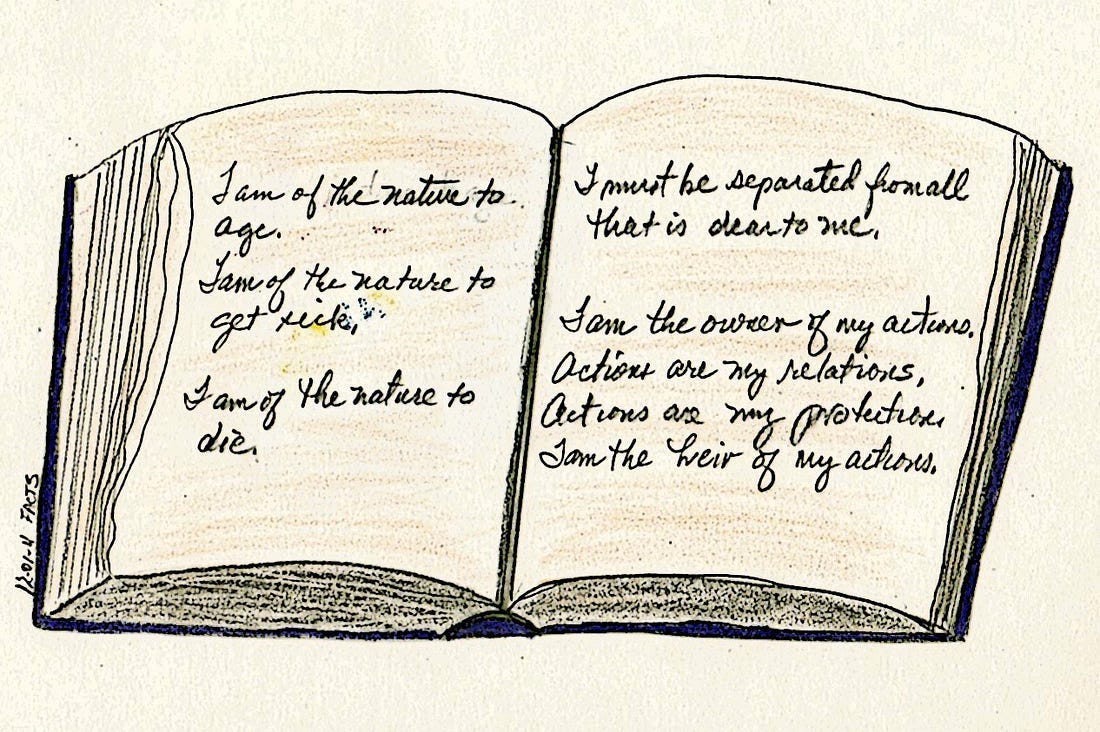 I am of the nature to
age.
I am of the nature to
get sick.
I am of the nature to
die.
I must be separated from all
that is dear to me.
I am the owner of my actions.
Actions are my relations,
Actions are my protection.
I am the heir of my actions.
FACTS